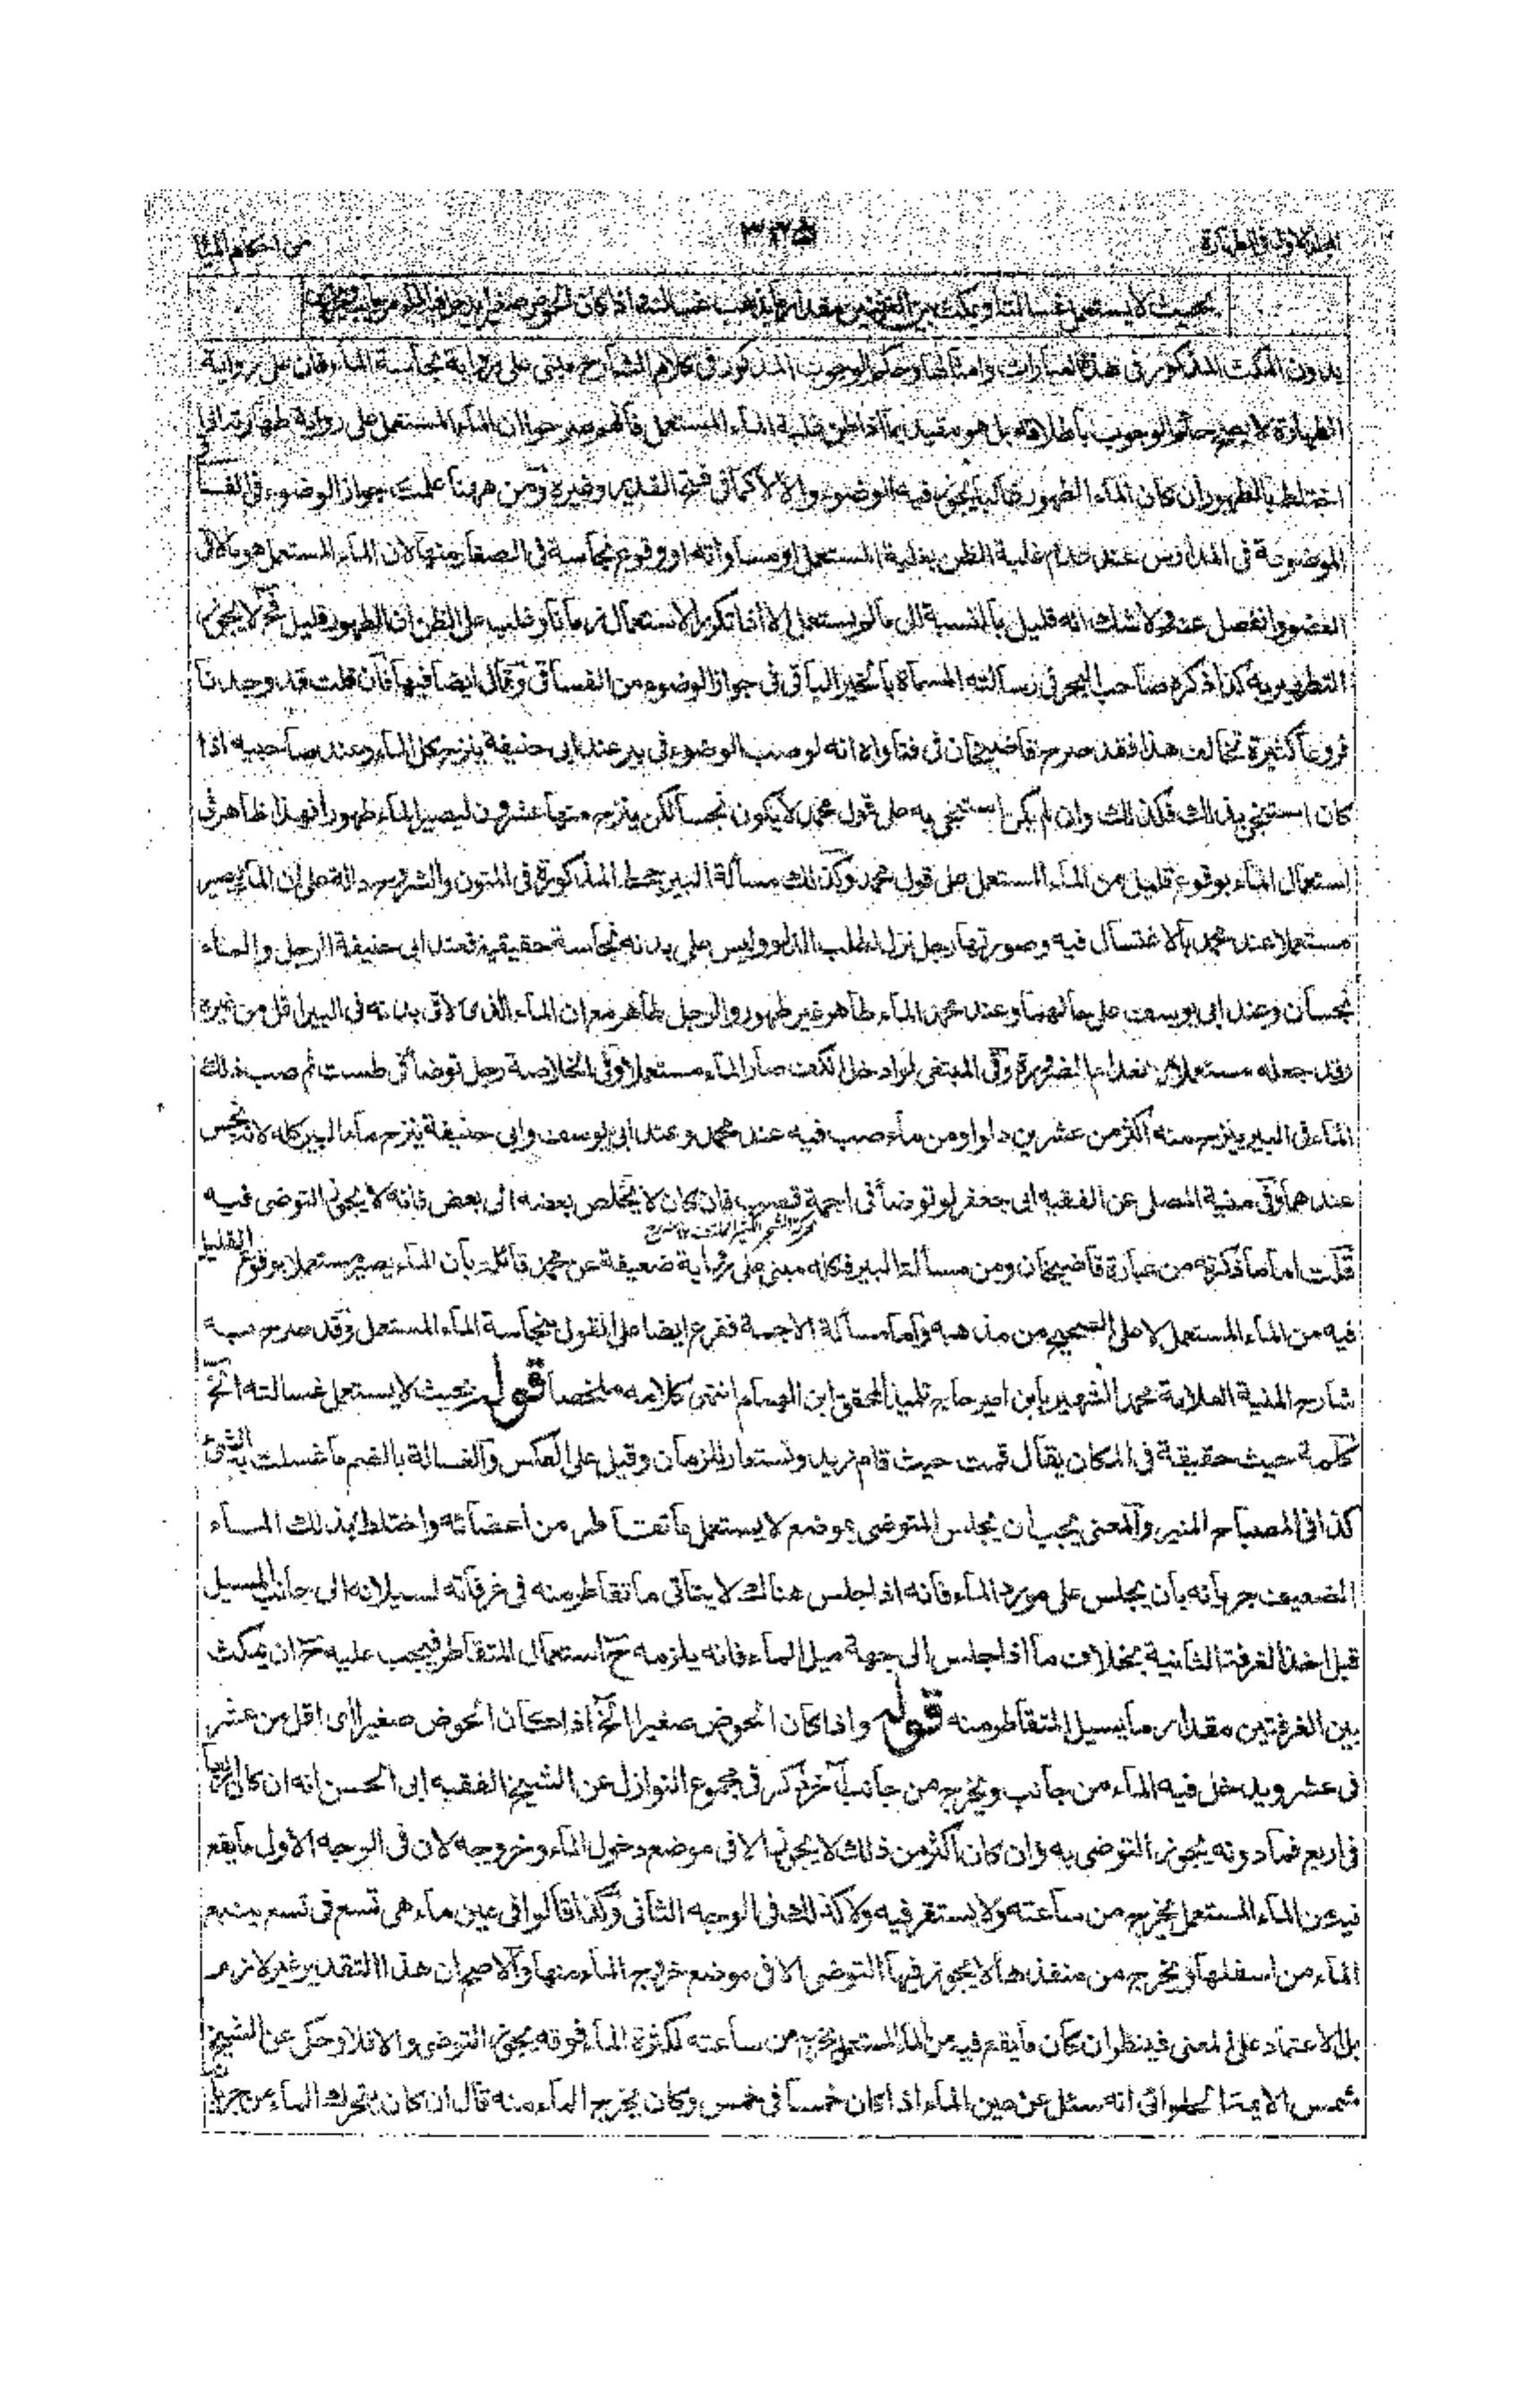 المجلد الاول فى الطهارة ٣٢٥ من احكام المياه
بحيث لا يستعمل غسالته او يمكث بين الغرفتين مقدار ما يذهب غسالته واذا كان الحوض صغيرا يدخل فيه الماء من جانب ويخرج
بدون المكث المذكور فى هذه العبارات وامثالها وحكم الوجوب المذكور فى كلام الشارح مبنى على رواية نجاسة الماء فان على رواية
الطهارة لا يصح حكم الوجوب باطلاقه بل هو مقيد بما اذا ظن غلبة الماء المستعمل فانهم صرحوا ان الماء المستعمل على رواية طهارته اذا
اختلط بالطهور ان كان الماء الطهور غالبا يجوز فيه الوضوء والا لا كما فى فتح القدير وغيره ومن ههنا علمت جواز الوضوء فى الفساقى
الموضوعة فى المدارس عند عدم غلبة الظن بغلبة المستعمل او مساواته او وقوع نجاسة فى الصغار منها لان الماء المستعمل هو ما لاقى
العضو وانفصل عنه ولا شك انه قليل بالنسبة الى ما لم يستعمل الا اذا تكرر الاستعمال زمانا وغلب على الظن ان الطهور قليل فح لا يجوز
التطهير به كذا ذكره صاحب البحر فى رسالته المسماة بالخير الباقى فى جواز الوضوء من الفساقى وقال ايضا فيها فان قلت قد وجدنا
فروعا كثيرة تخالف هذا فقد صرح قاضيخان فى فتاواه انه لو صب الوضوء فى بير عند ابى حنيفة ينزح كل الماء وعند صاحبيه اذا
كان استنجى بذلك فكذلك وان لم يكن استنجى به على قول محمد لا يكون نجسا لكن ينزح منها عشرون ليصير الماء طهورا فهذا ظاهر فى
استعمال الماء بوقوع قليل من الماء المستعمل على قول محمد وكذلك مسألة البير جحط المذكورة فى المتون والشروح دالة على ان الماء يصير
مستعملا عند محمد بالاغتسال فيه وصورتها رجل نزل لطلب الدلو وليس على بدنه نجاسة حقيقية فعند ابى حنيفة الرجل والماء
نجسان وعند ابى يوسف على حالهما وعند محمد الماء طاهر غير طهور والرجل طاهر مع ان الماء الذى لاقى بدنه فى البير اقل من غيره
وقد جعله مستعملا لانعدام الضرورة وفى المبتغى لو ادخل الكف صار الماء مستعملا وفى الخلاصة رجل توضأ فى طست ثم صب ذلك
الماء فى البير ينزح منه اكثر من عشرين دلوا ومن ماء صب فيه عند محمد وعند ابى يوسف وابى حنيفة ينزح ماء البير كله لانه نجس
عندهما وفى منية المصلى عن الفقيه ابى جعفر لو توضأ فى اجمة قصب فان كان لا يخلص بعضه الى بعض فانه لا يجوز التوضى فيه
قلت اما ما ذكرته من عبارة قاضيخان ومن مسألة البير فكله مبنى على رواية ضعيفة عن محمد قائلة بان الماء يصير مستعملا بوقوع القليل
فيه من الماء المستعمل لا على الصحيح من مذهبه واما مسألة الاجمة ففرع ايضا على القول بنجاسة الماء المستعمل وقد صرح به
شارح المنية العلامة محمد الشهير بابن امير حاج تلميذ المحقق ابن الهمام انتهى كلامه ملخصا قوله بحيث لا يستعمل غسالته الخ
كلمة حيث حقيقة فى المكان يقال قمت حيث قام زيد وتستعار للزمان وقيل على العكس والغسالة بالضم ما غسلت به الشئ
كذا فى المصباح المنير والمعنى يجب ان يجلس المتوضى بموضع لا يستعمل ما تقاطر من اعضائه واختلط بذلك الماء
الضعيف جريانه بان يجلس على مورد الماء فانه اذا جلس هناك لا يتأتى ما تقاطر منه فى غرفاته لسيلانه الى جانب المسيل
قبل اخذ الغرفة الثانية بخلاف ما اذا جلس الى جهة ميل الماء فانه يلزمه ح استعمال المتقاطر فيجب عليه ح ان يمكث
بين الغرفتين مقدار ما يسيل المتقاطر منه قوله واذا كان الحوض صغيرا الخ اذا كان الحوض صغيرا اى اقل من عشر
فى عشر ويدخل فيه الماء من جانب ويخرج من جانب آخر ذكر فى مجموع النوازل عن الشيخ الفقيه ابى الحسن انه ان كان اربعا
فى اربع فما دونه يجوز التوضى به وان كان اكثر من ذلك لا يجوز الا فى موضع دخول الماء وخروجه لان فى الوجه الأول ما يقع
فيه من الماء المستعمل يخرج من ساعته ولا يستقر فيه ولا كذلك فى الوجه الثانى وكذا قالوا فى عين ماء هى تسع فى تسع ينبع
الماء من اسفلها ويخرج من منفذها لا يجوز فيها التوضى الا فى موضع خروج الماء منها والاصح ان هذا التقدير غير لازم
بل الاعتماد على المعنى فينظر ان كان ما يقع فيه من الماء المستعمل يخرج من ساعته لكثرة الماء وقوته يجوز التوضى والا فلا وحكى عن الشيخ
شمس الايمة الحلوائى انه سئل عن عين الماء اذا كان خمسا فى خمس وكان يخرج الماء منه قال ان كان يتحرك الماء من جريانه